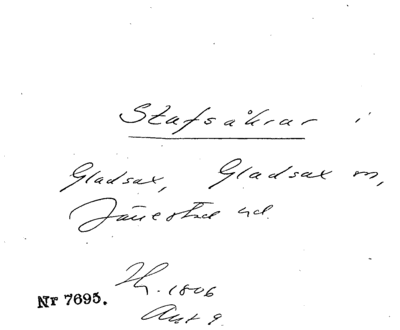 Stafsåkrar i
Gladsax, Gladsax m,
Järrestad hd.
Th. 1806
Akt 9.
Nr 7695.